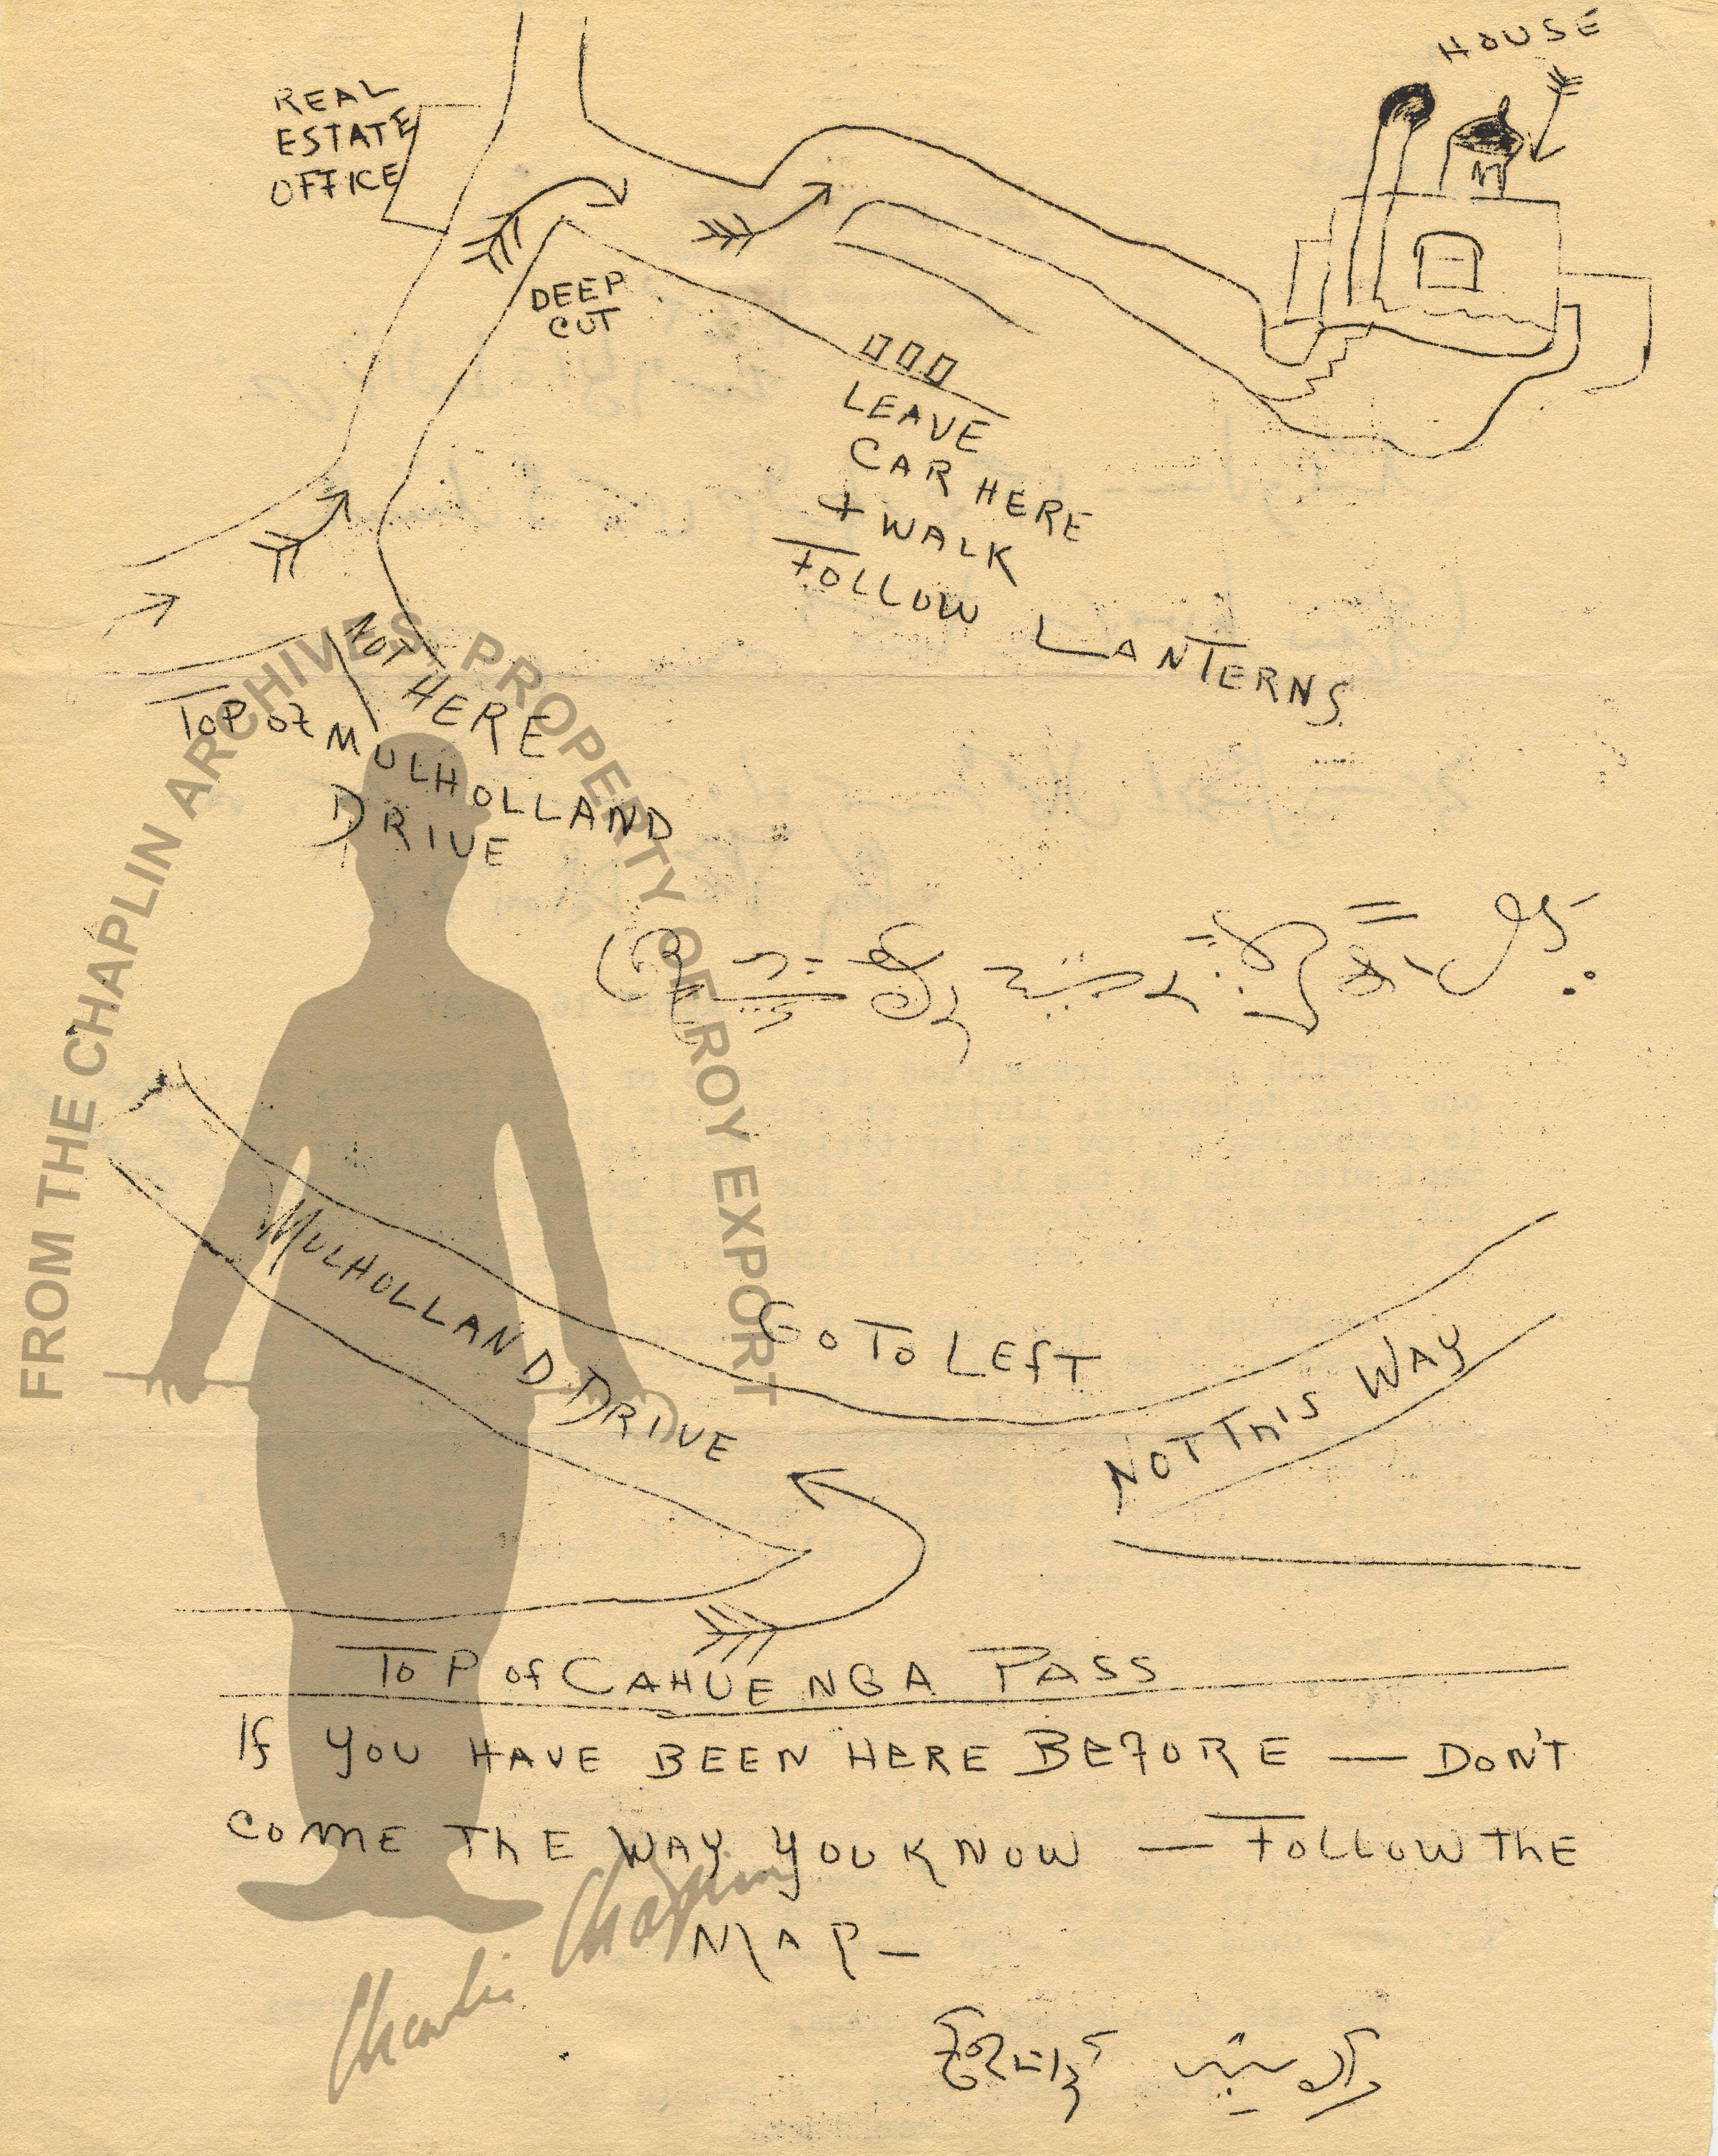 HOUSE
REAL
ESTATE
OFFICE
DEEP
CUT
LEAVE
CAR HERE
+ WALK
FOLLOW LANTERNS
NOT
HERE
TOP OF MULHOLLAND
DRIVE
MULHOLLAND DRIVE
GO TO LEFT
NOT THIS WAY
TOP of CAHUENGA PASS
If YOU HAVE BEEN HERE BEFORE — DON'T
COME THE WAY YOU KNOW — FOLLOW THE
MAP —
FROM THE CHAPLIN ARCHIVES, PROPERTY OF ROY EXPORT
Charlie Chaplin